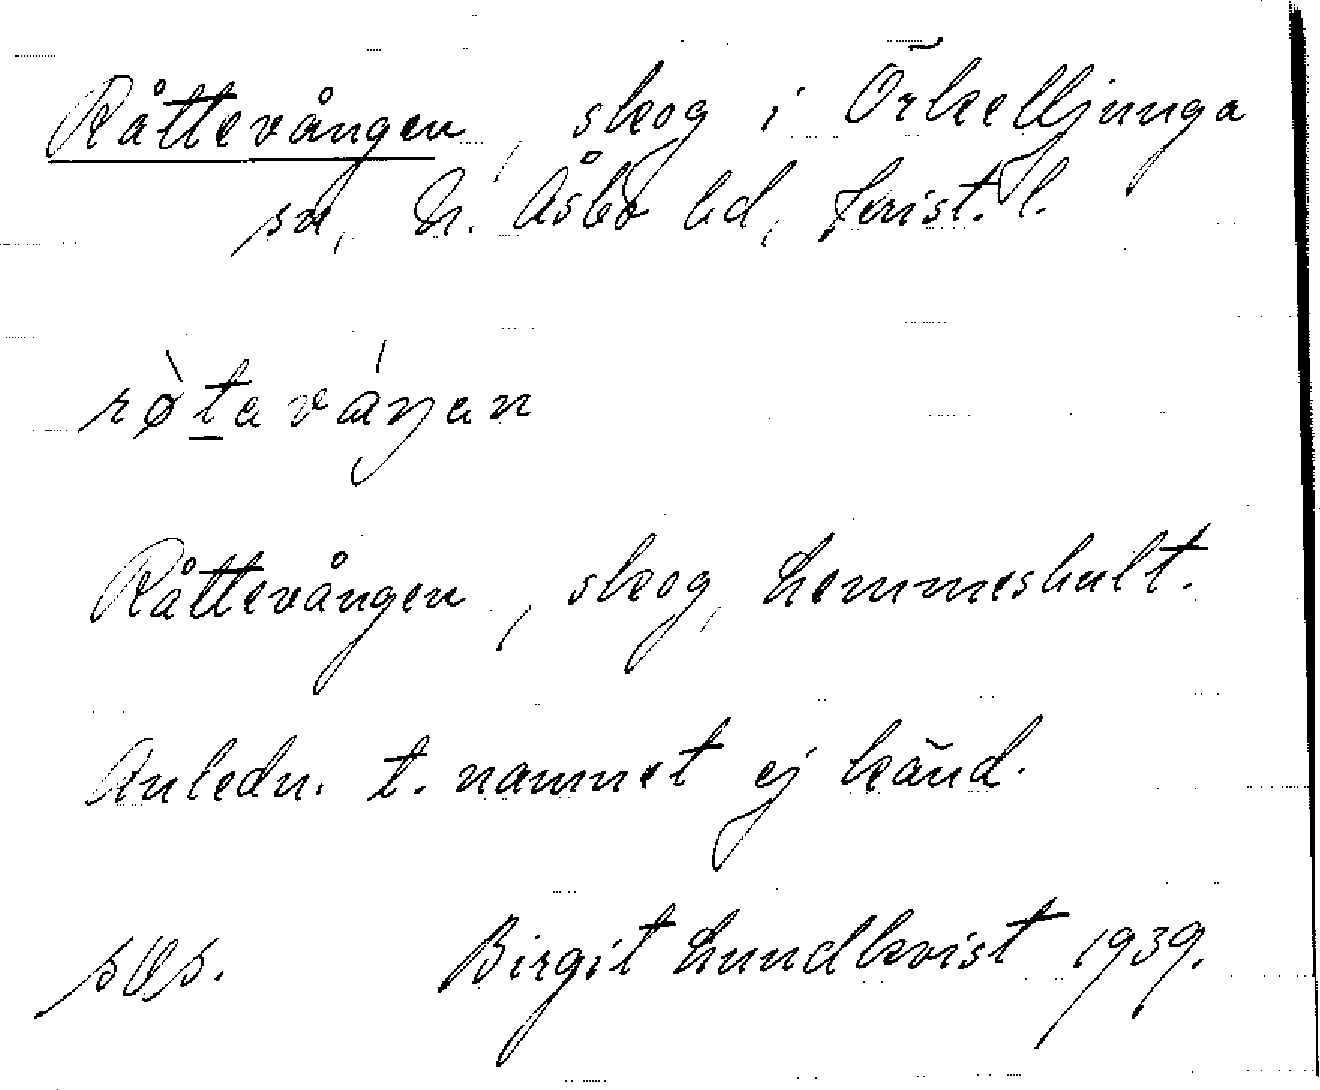 Råttevången, skog i Örkelljunga
sn, N. Åsbo hd, Krist. l.
rø̀taváŋan
Råttevången, skog, Lemmeshult.
Anledn. t. namnet ej känd.
Birgit Lundkvist 1939.